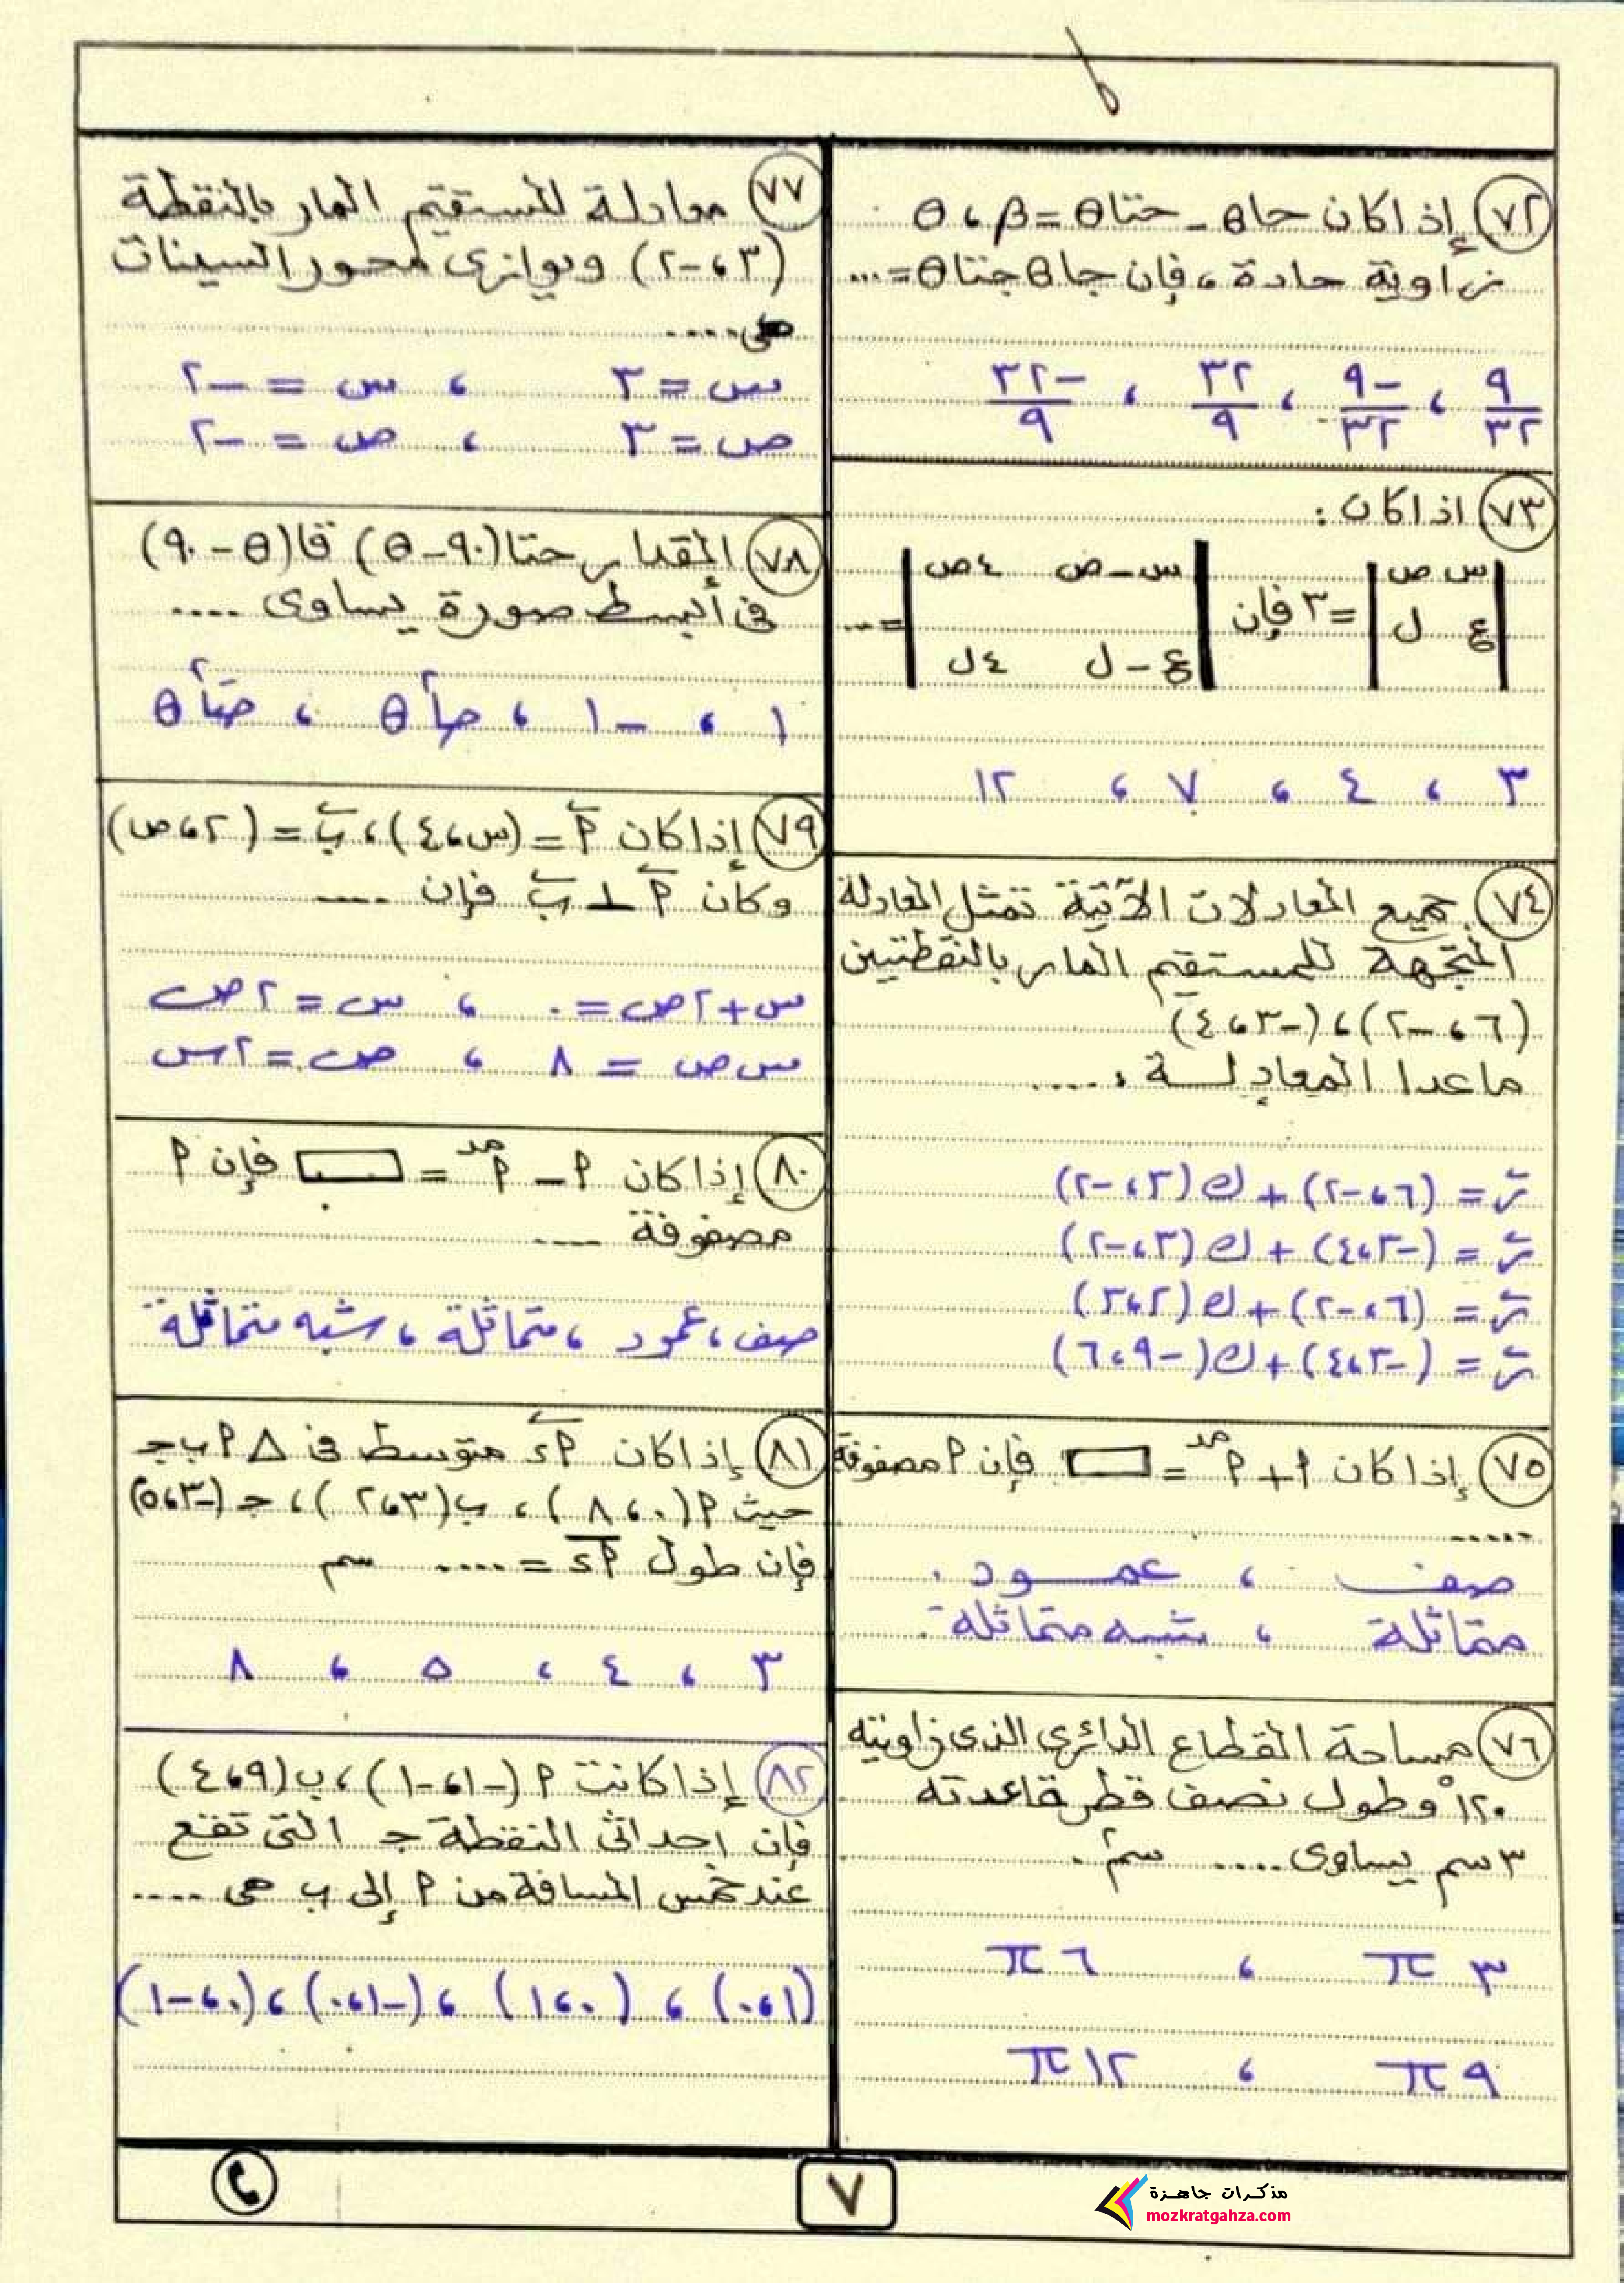 ٧٢ إذا كان حاθ - حتاθ = β ، θ
زاوية حادة ، فإن جاθ جتاθ = ...
٩/٣٢ ، -٩/٣٢ ، ٣٢/٩ ، -٣٢/٩
٧٣ اذا كان :
| س ص | | س - ص ٤ص |
= ٣ فإن = ...
| ع ل | | ع - ل ٤ل |
٣ ، ٤ ، ٧ ، ١٢
٧٤ جميع المعادلات الآتية تمثل المعادلة
المتجهة للمستقيم المار بالنقطتين
(٦ ، -٢) ، (-٣ ، ٤)
ماعدا المعادلة .....
ر = (٦ ، -٢) + ك (٣ ، -٢)
ر = (-٣ ، ٤) + ك (٣ ، -٢)
ر = (٦ ، -٢) + ك (٢ ، ٣)
ر = (-٣ ، ٤) + ك (-٩ ، ٦)
٧٥ إذا كان P + Pمد = ▭ فإن P مصفوفة
.....
صف ، عمود .
متماثلة ، شبه متماثلة .
٧٦ مساحة القطاع الدائري الذى زاويته
١٢٠° وطول نصف قطر قاعدته
٣ سم يساوى .... سم٢ .
٣ π ، ٦ π
٩ π ، ١٢ π
٧٧ معادلة المستقيم المار بالنقطة
(٣ ، -٢) ويوازى محور السينات
هى ....
س = ٣ ، س = -٢
ص = ٣ ، ص = -٢
٧٨ المقدار حتا(٩٠ - θ) قا(θ - ٩٠)
فى أبسط صورة يساوى ....
١ ، -١ ، حا٢ θ ، حتا٢ θ
٧٩ إذا كان P = (س ، ٤) ، ب = (٢ ، ص)
وكان P ⊥ ب فإن ....
س + ٢ص = ٠ ، س = ٢ص
س ص = ٨ ، ص = ٢س
٨٠ إذا كان P - Pمد = ▭ فإن P
مصفوفة ....
صف ، عمود ، متماثلة ، شبه متماثلة
٨١ إذا كان Pء متوسط فى Δ P ب جـ
حيث P (٠ ، ٨) ، ب (٣ ، ٢) ، جـ (-٣ ، ٥)
فإن طول Pء = .... سم
٣ ، ٤ ، ٥ ، ٨
٨٢ إذا كانت P (-١ ، -١) ، ب (٩ ، ٤)
فإن احداثى النقطة جـ التى تقع
عند خمس المسافة من P إلى ب هى ....
(١ ، ٠) ، (٠ ، ١) ، (-١ ، ٠) ، (٠ ، -١)
٧
مذكرات جاهزة
mozkratgahza.com